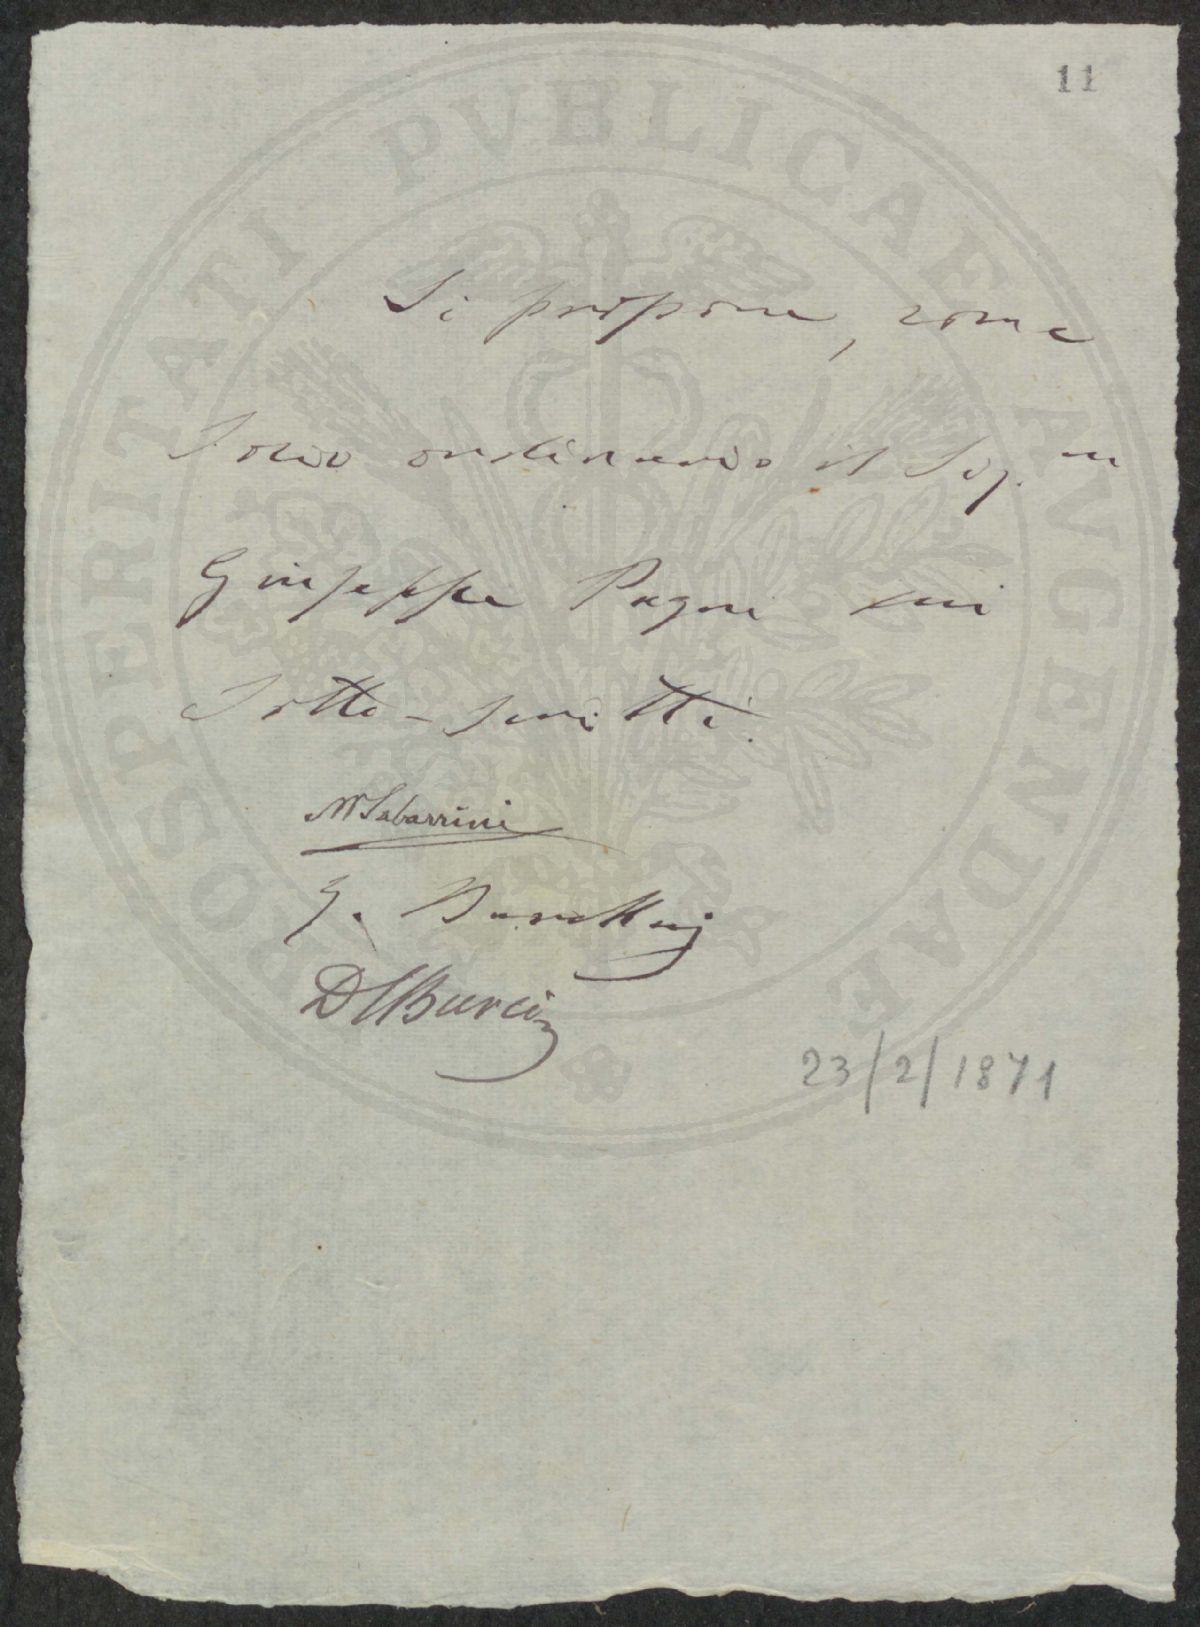 11
Si propone, come
Socio ordinario il Sig.re
Giuseppe Pagni dai
sotto-scritti.
M Tabarrini
G. Barellai
D C Burci
23/2/1871
PROSPERITATI PVBLICAE AVGENDAE